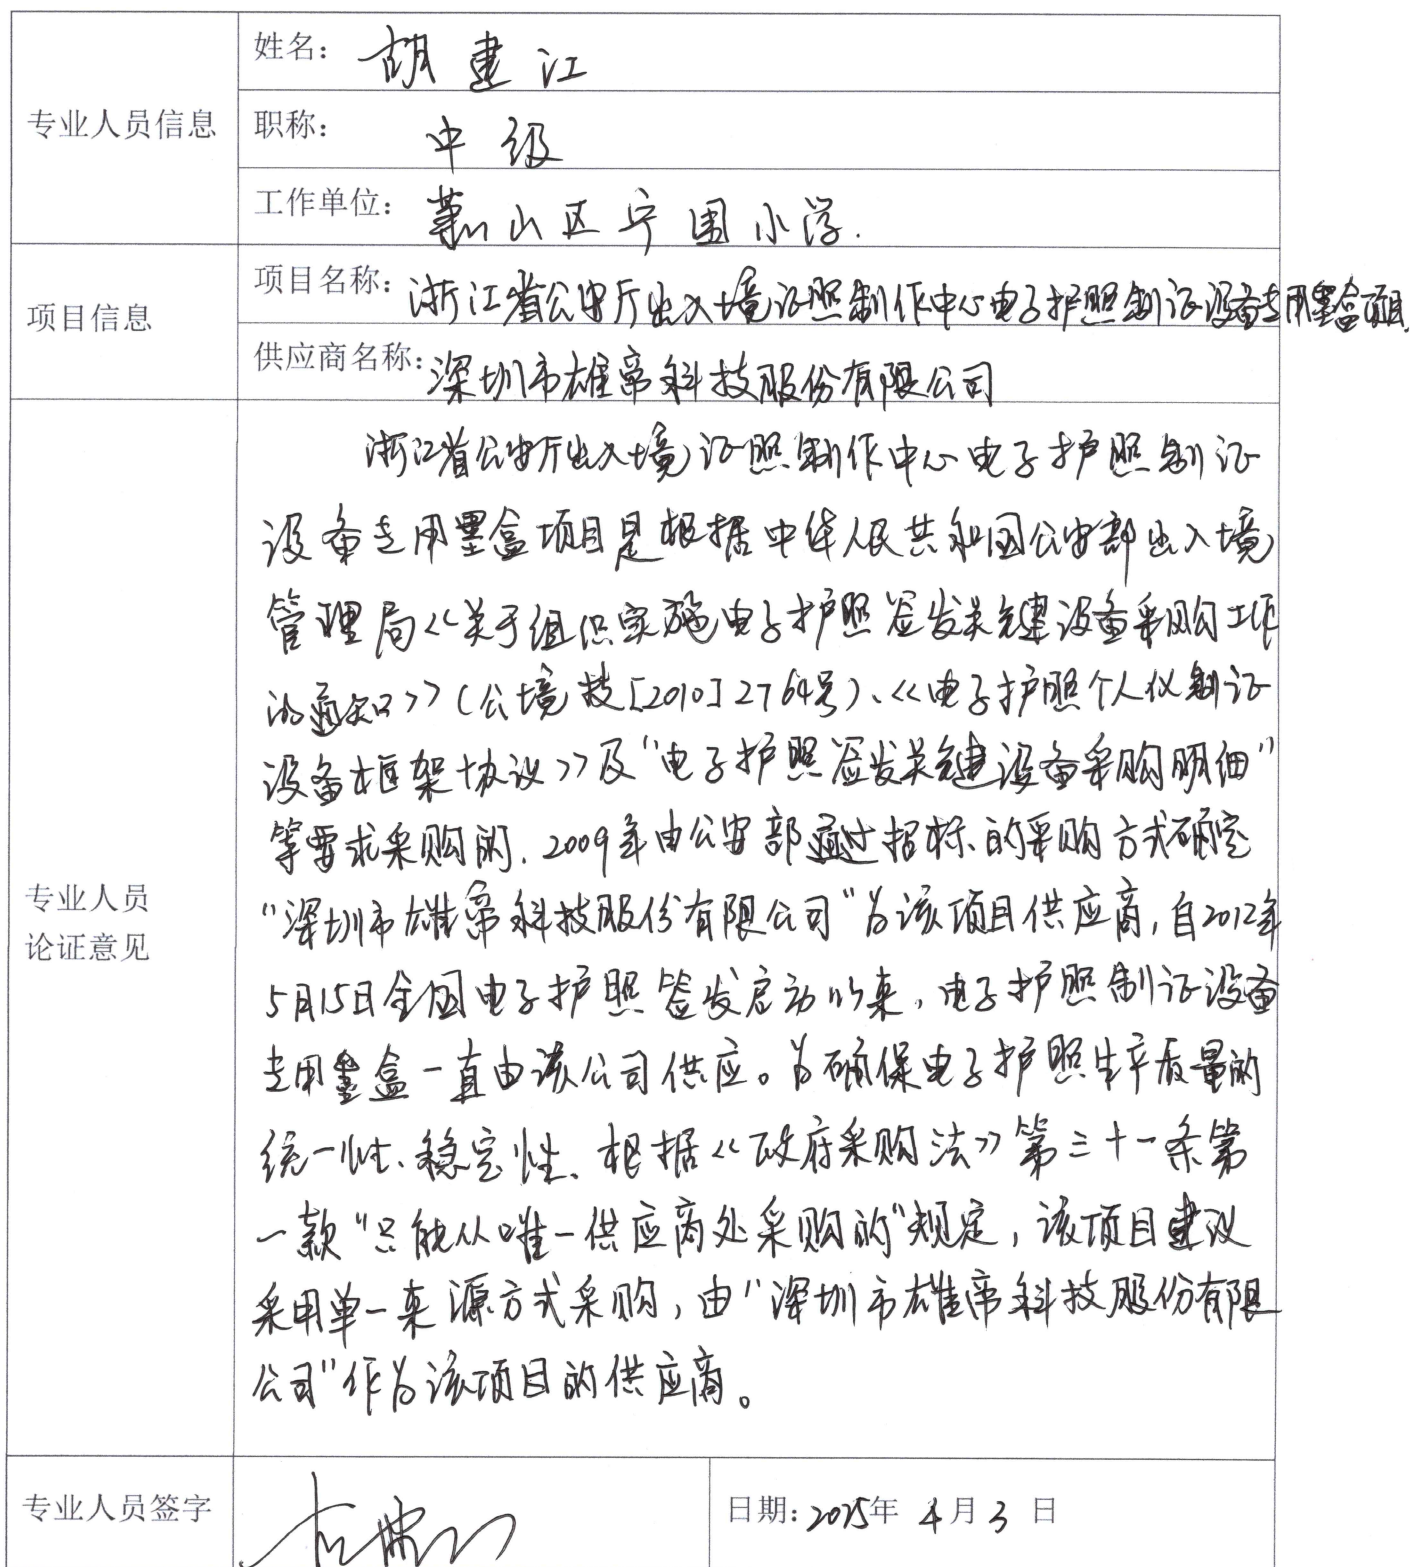 专业人员信息
姓名：胡建江
职称：中级
工作单位：萧山区宁围小学.
项目信息
项目名称：浙江省公安厅出入境证照制作中心电子护照制证设备专用墨盒项目
供应商名称：深圳市雄帝科技股份有限公司
专业人员
论证意见
浙江省公安厅出入境证照制作中心电子护照制证
设备专用墨盒项目是根据中华人民共和国公安部出入境
管理局<<关于组织实施电子护照签发关键设备采购工作
的通知>>(公境技[2010]2764号)、<<电子护照个人化制证
设备框架协议>>及"电子护照签发关键设备采购明细"
等要求采购的. 2009年由公安部通过招标的采购方式确定
"深圳市雄帝科技股份有限公司"为该项目供应商,自2012年
5月15日全国电子护照签发启动以来,电子护照制证设备
专用墨盒一直由该公司供应。为确保电子护照生产质量的
统一性、稳定性、根据<<政府采购法>>第三十一条第
一款"只能从唯一供应商处采购的"规定,该项目建议
采用单一来源方式采购,由"深圳市雄帝科技股份有限
公司"作为该项目的供应商。
专业人员签字
日期：2025年4月3日